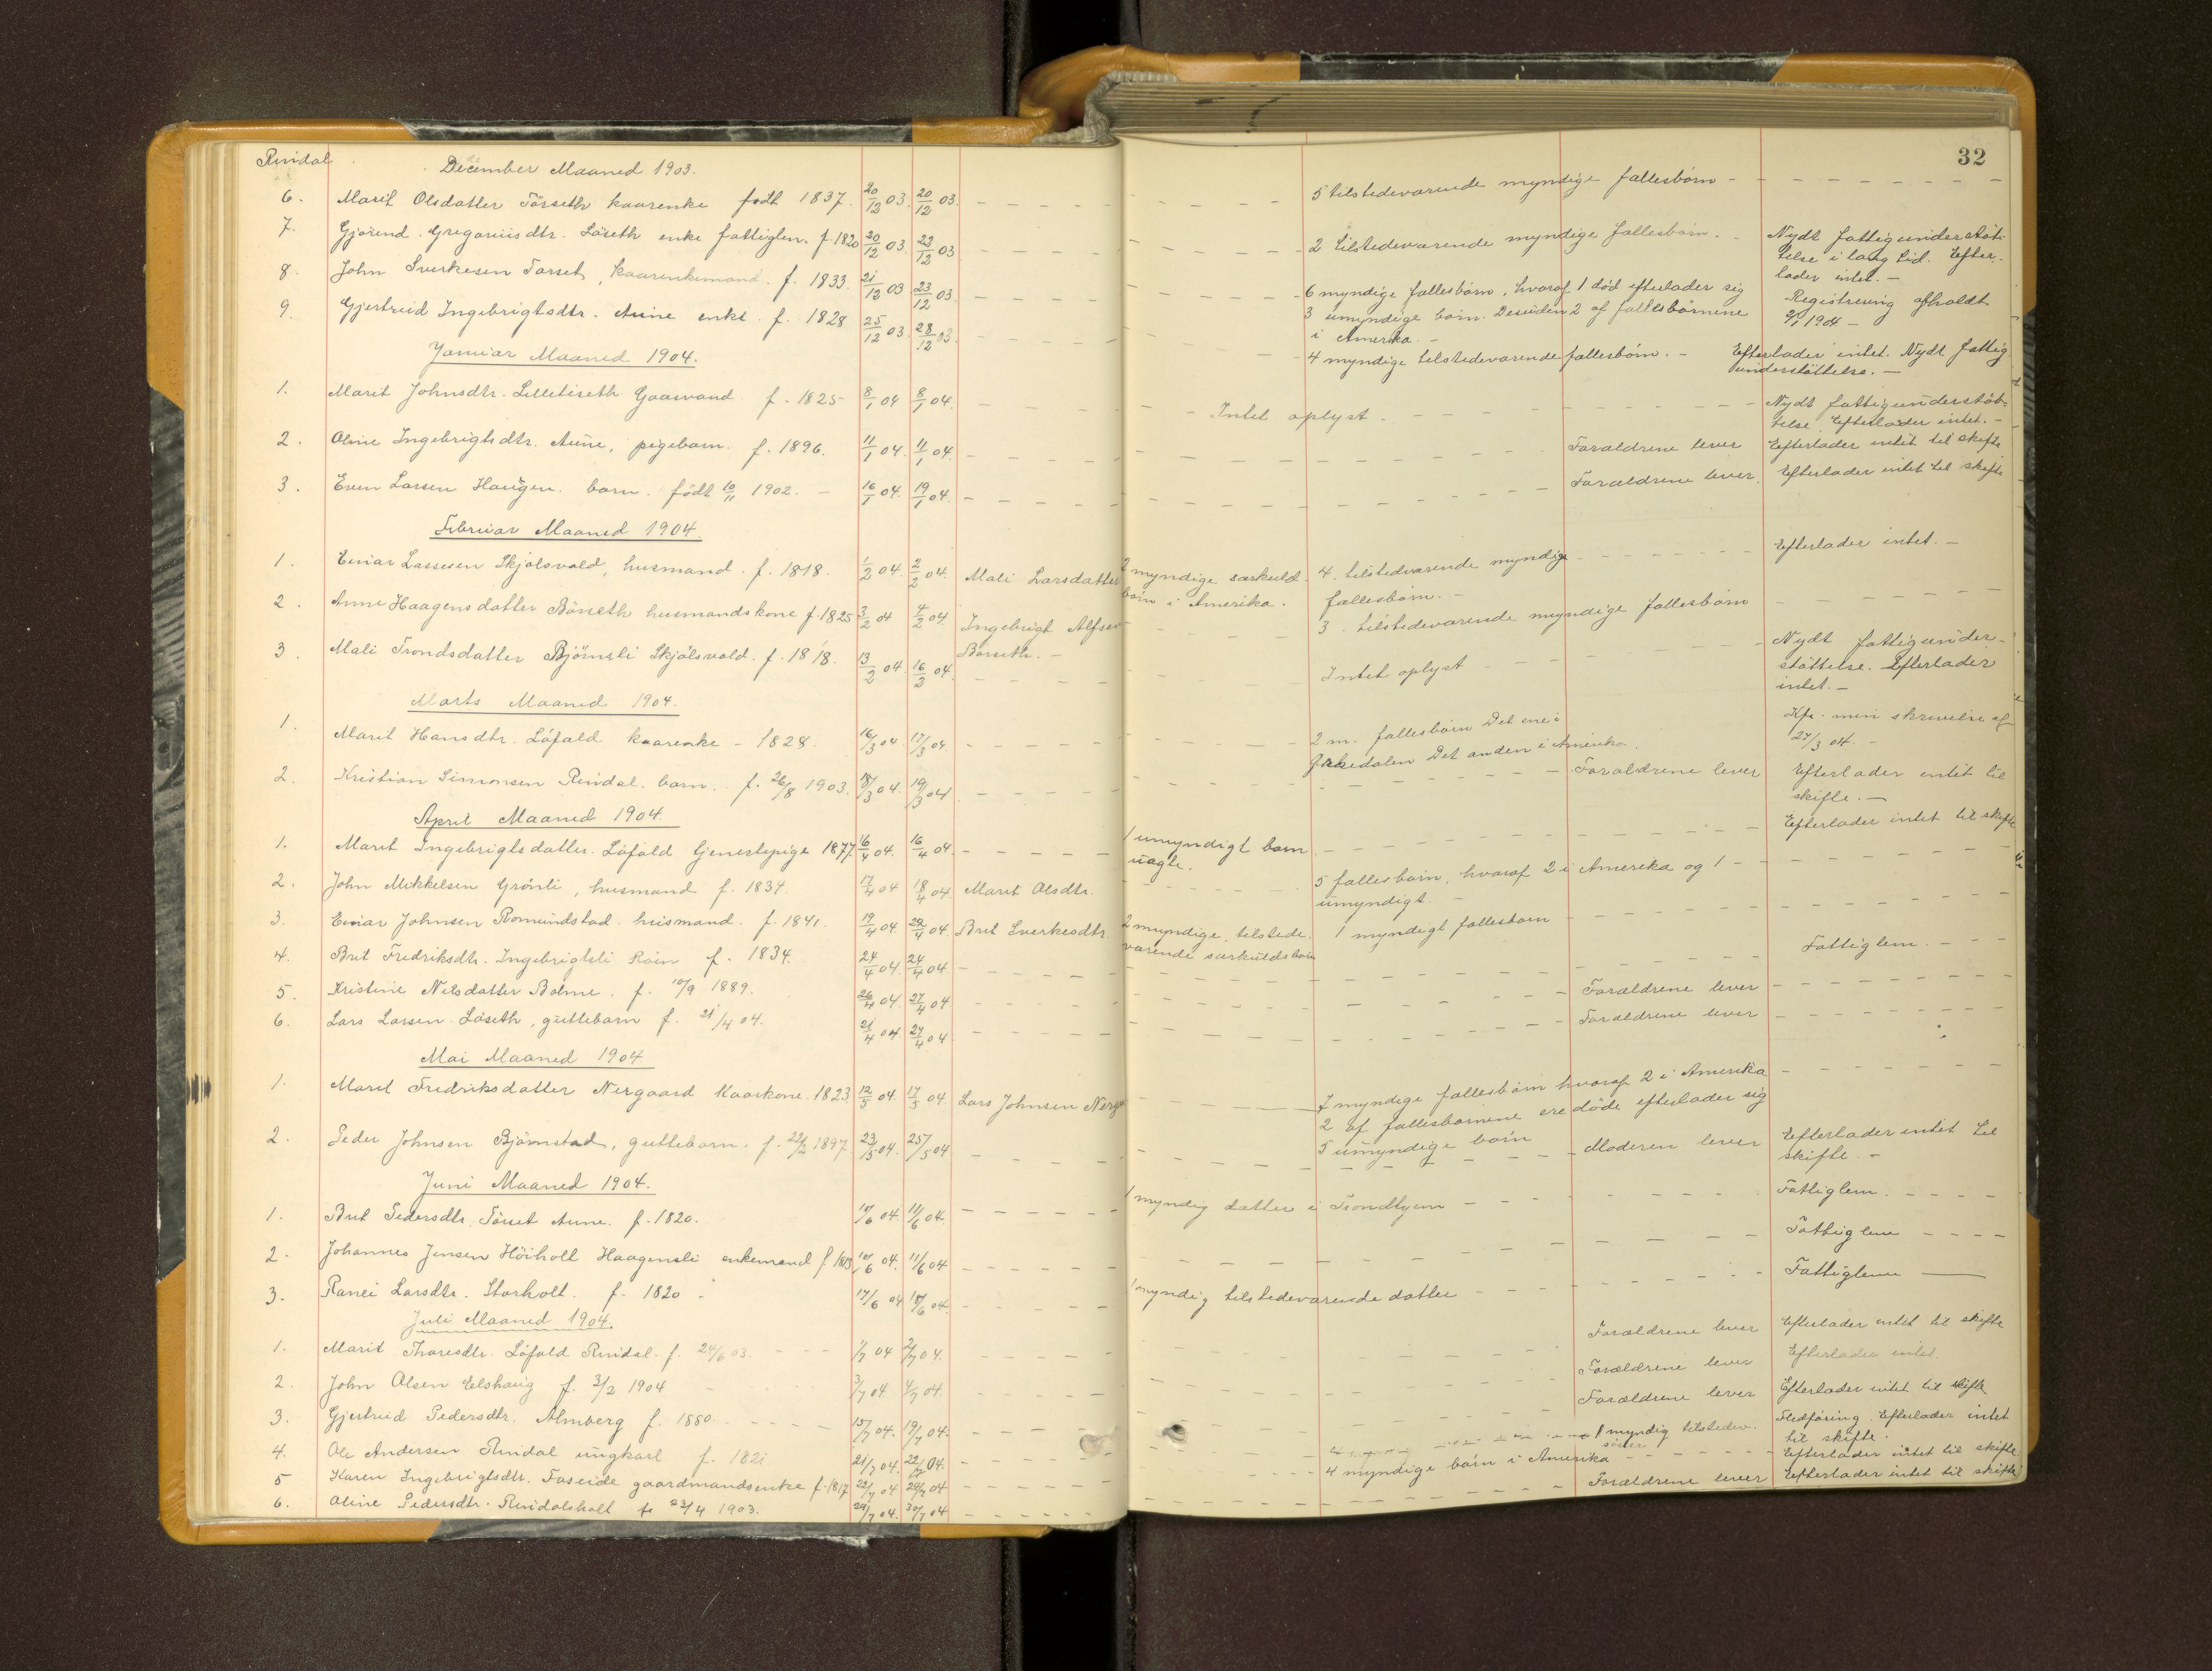 Rindal
32
December Maaned 1903.
6. Marit Olsdatter Törseth kaarenke födt 1837. 20/12 03. 20/12 03. – – – 5 tilstedeværende myndige fællesbörn – – –
7. Gjörend Gregoriusdtr. Löseth enke fattiglem. f. 1820 20/12 03 23/12 03 – – – 2 tilstedeværende myndige fællesbörn. – Nydt fattigunderstöt-
telse i lang tid. Efter-
lader intet. –
8. John Sverkesen Torset, kaarenkemand. f. 1833. 21/12 03 23/12 03. – – – 6 myndige fællesbörn, hvoraf 1 död efterlader sig
3 umyndige börn. Desuden 2 af fællesbörnene
i Amerika. – Registrering afholdt
2/1 1904 –
9. Gjertruid Ingebrigtsdtr. Aune enke f. 1828 25/12 03. 28/12 03. – – – 4 myndige tilstedeværende fællesbörn. – Efterlader intet. Nydt fattig
understöttelse. –
Januar Maaned 1904.
1. Marit Johnsdtr. Lilletiseth Gaasvand. f. 1825 8/1 04 8/1 04. – – – Intet oplyst – – – Nydt fattigunderstöt-
telse. Efterlader intet. –
2. Oline Ingebrigtsdtr. Aune, pigebarn. f. 1896. 11/1 04. 11/1 04. – – – Forældrene lever Efterlader intet til skifte
3. Even Larsen Haugen. barn. födt 10/11 1902. – 16/1 04. 19/1 04. – – – Forældrene lever. Efterlader intet til skifte
Februar Maaned 1904.
1. Einar Lassesen Skjölsvold, husmand. f. 1818. 1/2 04. 2/2 04. Mali Larsdatter 2 myndige særkuld-
börn i Amerika. 4. tilstedværende myndige
fællesbörn. – Efterlader intet. –
2. Anne Haagensdatter Börseth husmandskone f. 1825 3/2 04 4/2 04. Ingebrigt Alfsen
Börseth. – 3. tilstedeværende myndige fællesbörn – – –
3. Mali Trondsdatter Björnsli Skjölsvold. f. 1818. 13/2 04 16/2 04. – – – Intet oplyst – – – Nydt fattigunder-
stöttelse. Efterlader
intet. –
Marts Maaned 1904.
1. Marit Hansdtr. Löfald kaarenke – 1828. 16/3 04. 17/3 04. – – – 2 m. fællesbörn Det ene i
Orkedalen Det anden i Amerika. Kfr. min skrivelse af
27/3 04. –
2. Kristian Simonsen Rindal. barn. f. 26/8 1903. 18/3 04. 19/3 04 – – – Forældrene lever Efterlader intet til
skifte. –
April Maaned 1904.
1. Marit Ingebrigtsdatter. Löfald tjenestepige 1877. 16/4 04. 16/4 04. – – – 1 umyndigt barn
uægte. – – – Efterlader intet til skifte
2. John Mikkelsen Grönli, husmand f. 1834. 17/4 04 18/4 04. Marit Olsdtr. 5 fællesbörn, hvoraf 2 i Amerika og 1
umyndigt. – – –
3. Einar Johnsen Romundstad. husmand. f. 1841. 19/4 04. 22/4 04. Brit Sverkesdtr. 2 myndige, tilstede-
værende særkuldsbörn 1 myndigt fællesbarn – – –
4. Brit Fredriksdtr. Ingebrigtsli Röen f. 1834. 24/4 04. 24/4 04. – – – Fattiglem. – – –
5. Kristine Nilsdatter Bolme. f. 10/9 1889. 26/4 04. 27/4 04 – – – Forældrene lever – – –
6. Lars Larsen Löseth, guttebarn f. 21/4 04. 21/4 04. 27/4 04 – – – Forældrene lever – – –
Mai Maaned 1904
1. Marit Fredriksdatter Nergaard kaarkone. 1823 12/5 04. 17/5 04. Lars Johnsen Nerg 7 myndige fællesbörn hvoraf 2 i Amerika
2 af fællesbörnene ere döde efterlader sig
5 umyndige börn – – –
2. Peder Johnsen Björnstad, guttebarn. f. 22/2 1897 23/5 04. 25/5 04 – – – Moderen lever Efterlader intet til
skifte. –
Juni Maaned 1904.
1. Brit Pedersdtr. Törset Aune. f. 1820. 10/6 04. 11/6 04. – – – 1 myndig datter i Trondhjem – – – Fattiglem. – – –
2. Johannes Jensen Höiholt Haagensli enkemand f. 10/6 04. 11/6 04 – – – Fattiglem – – –
3. Ranei Larsdtr. Storholt. f. 1820. 17/6 04 18/6 04. – – – 1 myndig tilstedeværende datter – – – Fattiglem –
Juli Maaned 1904.
1. Marit Thoresdtr. Löfald Rindal. f. 24/6 03. – – – 1/7 04 2/7 04. – – – Forældrene lever Efterlader intet til skifte
2. John Olsen Elshaug f. 3/2 1904 3/7 04 4/7 04. – – – Forældrene lever Efterlader intet.
3. Gjertruid Pedersdtr. Almberg f. 1880. – – – 15/7 04. 19/7 04. – – – Forældrene lever Efterlader intet til skifte
4. Ole Andersen Rindal ungkarl f. 1821. 21/7 04. 22/7 04. – – – 1 myndig tilstedev.
söster Fledföring. Efterlader intet
til skifte.
5 Karen Ingebrigtsdtr. Foseide gaardmandsenke f. 1817 22/7 04 24/7 04 – – – 4 myndige börn i Amerika – – – Efterlader intet til skifte
6. Oline Pedersdtr. Rindalsholt f. 23/4 1903. 29/7 04. 30/7 04 – – – Forældrene lever Efterlader intet til skifte